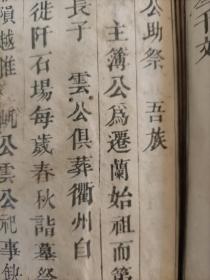 公助祭 吾族
主簿公爲遷蘭始祖而第
長子 雲公俱葬衢州自
徙阡石場每歲春秋詣墓祭
隕越惟 公雲公祀事